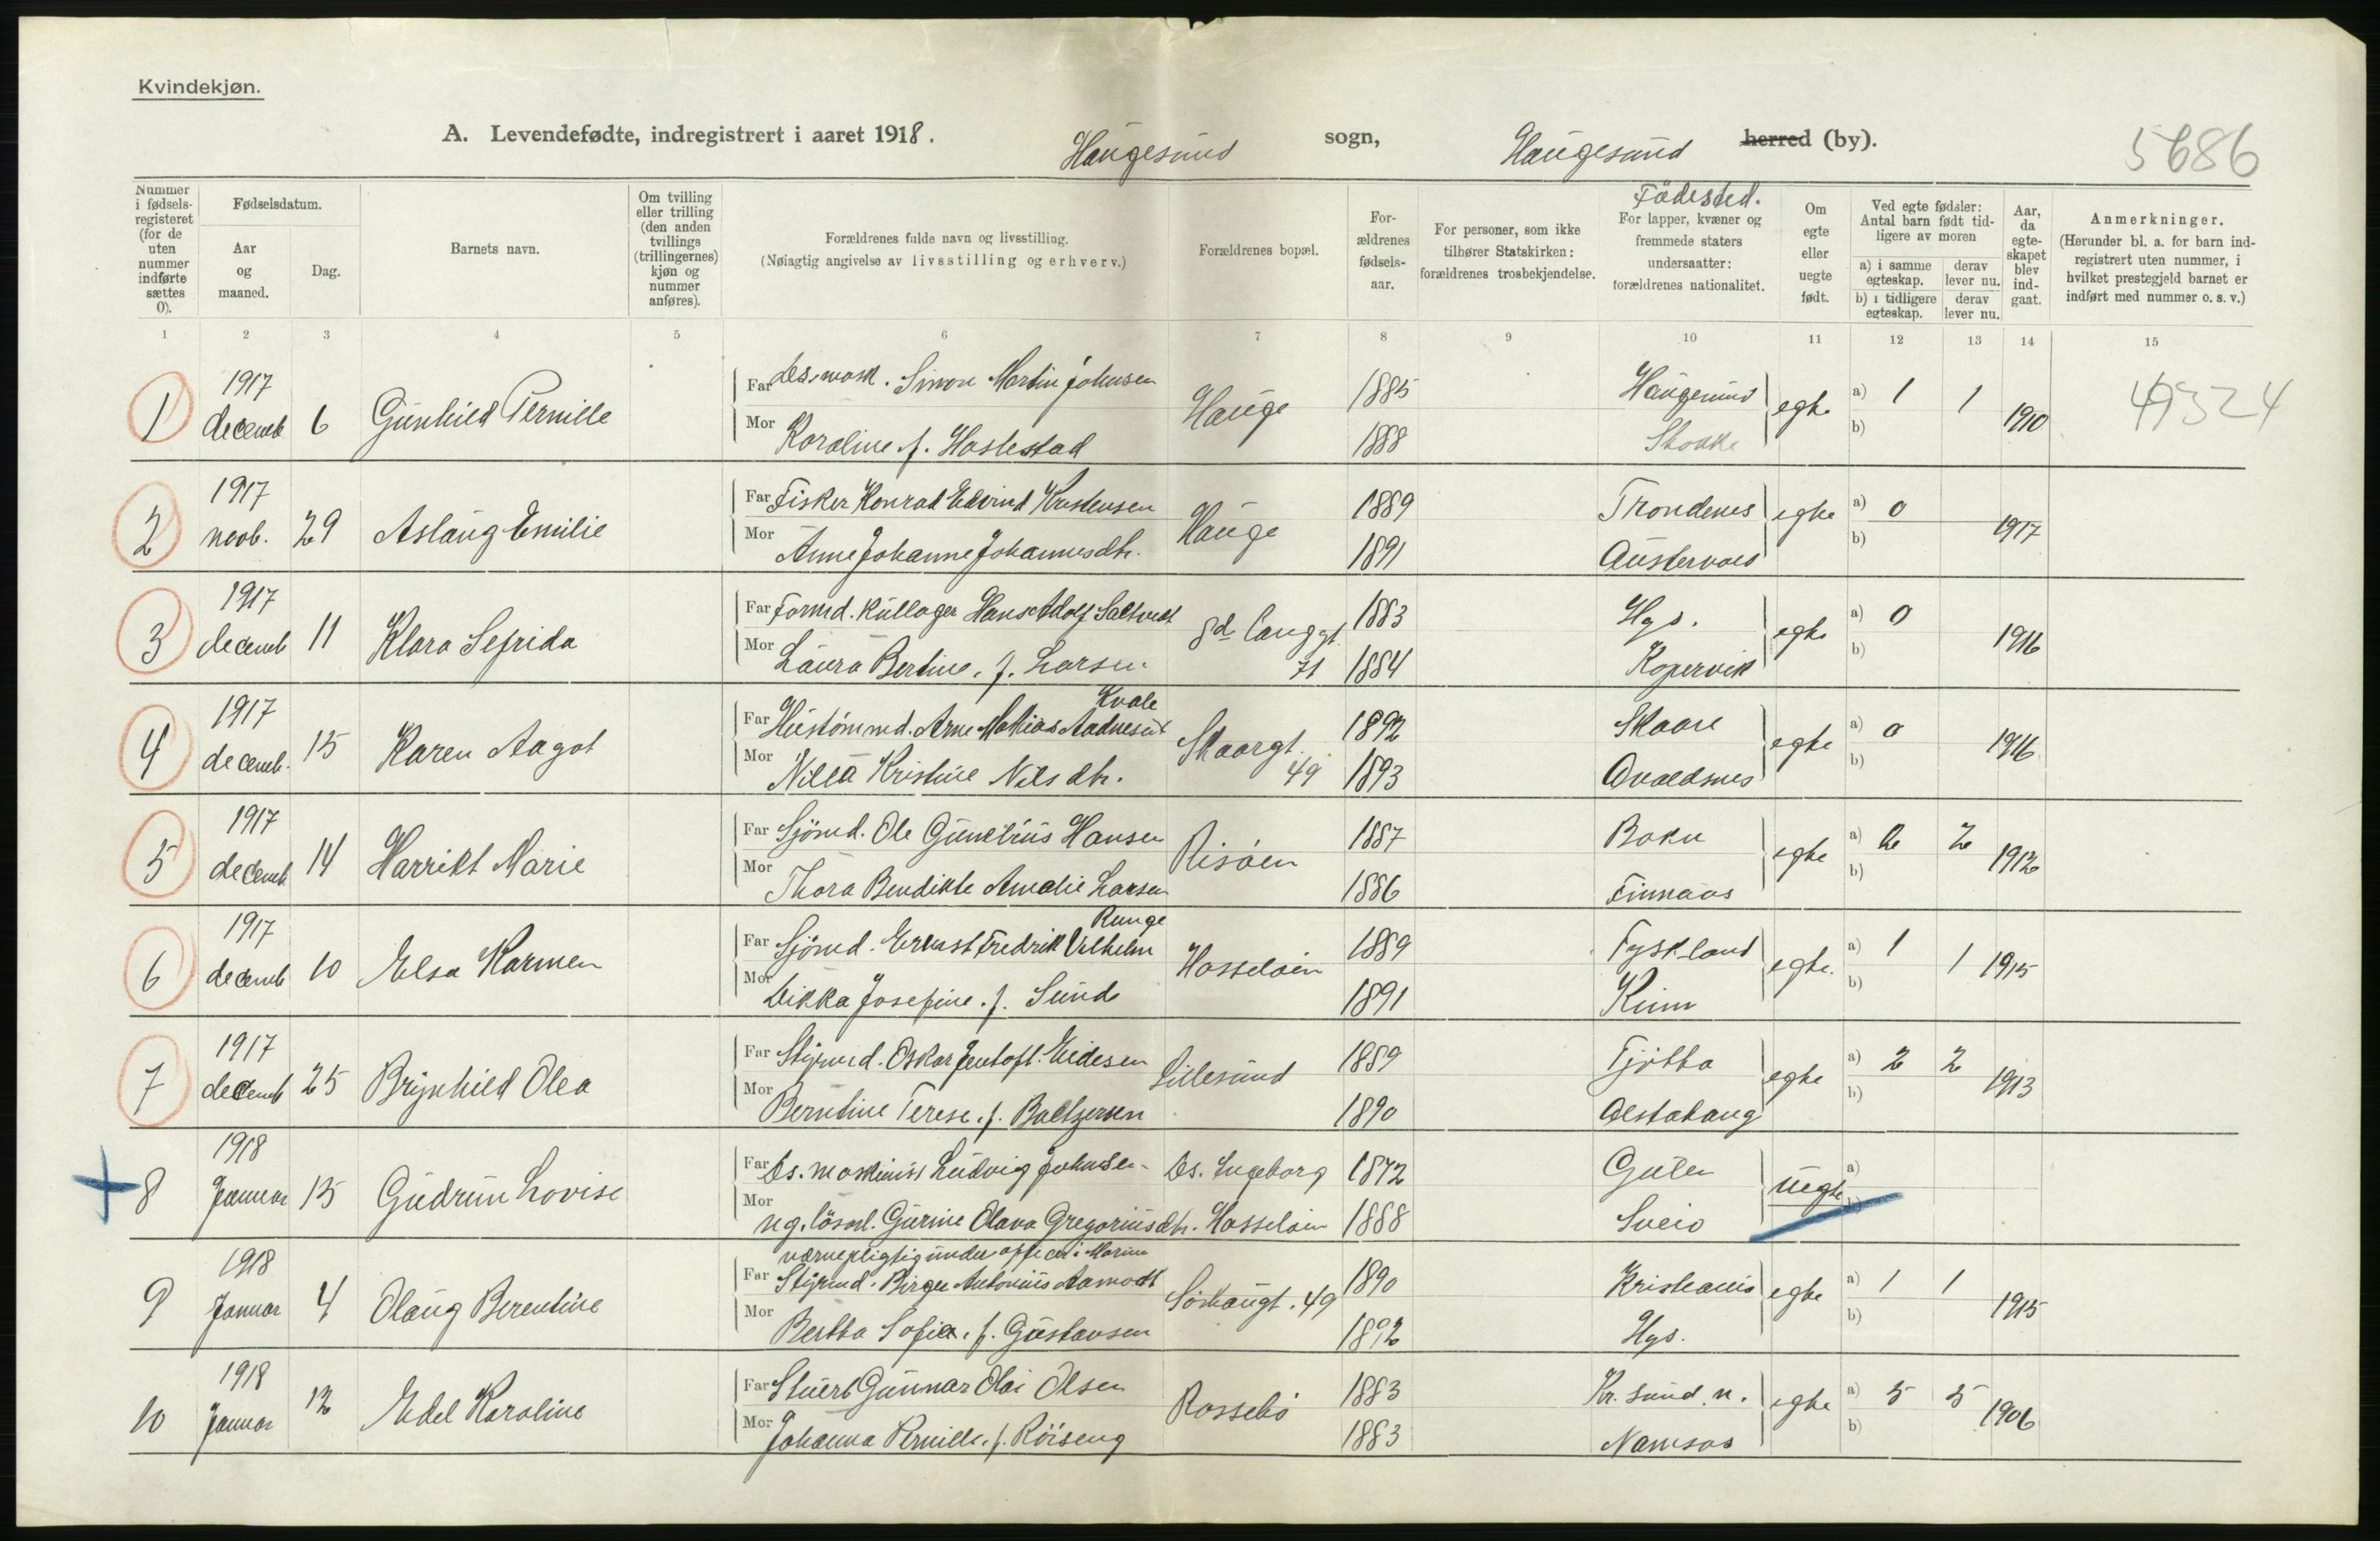 Kvindekjøn.
A. Levendefødte, indregistrert i aaret 1918. Haugesund sogn, Haugesund herred (by). 5686
Nummer i fødsels-registeret (for de uten nummer indførte sættes 0).
Fødselsdatum.
Aar og maaned.
Dag.
Barnets navn.
Om tvilling eller trilling (den anden tvillings (trillingernes) kjøn og nummer anføres).
Forældrenes fulde navn og livsstilling.
(Nøiagtig angivelse av livsstilling og erhverv.)
Forældrenes bopæl.
For-ældrenes fødsels-aar.
For personer, som ikke tilhører Statskirken: forældrenes trosbekjendelse.
Födested.
For lapper, kvæner og fremmede staters undersaatter: forældrenes nationalitet.
Om egte eller uegte født.
Ved egte fødsler: Antal barn født tid-ligere av moren
a) i samme egteskap. derav lever nu.
b) i tidligere egteskap. derav lever nu.
Aar, da egte-skapet blev ind-gaat.
Anmerkninger.
(Herunder bl. a. for barn ind-registrert uten nummer, i hvilket prestegjeld barnet er indført med nummer o. s. v.)
1 2 3 4 5 6 7 8 9 10 11 12 13 14 15
1 1917 decemb 6 Gunhild Pernille Far Simon Martin Johnsen Hauge 1885 Haugesund egte a) 1 1 1910 49324
Mor Karoline f. Hastestad 1888 b)
2 1917 novb. 29 Aslaug Emilie Far Fisker Konrad Edvind Kristensen Hauge 1889 Trondenes egte a) 0 1917
Mor Anne Johanne Johannesdtr. 1891 Austervold b)
3 1917 decemb 11 Klara Sefrida Far Formd. Kullager Hans Adolf Saltvedt 71 1883 Hgs. egte a) 0 1916
Mor Laura Bertine, f. Larsen 1884 Kopervik b)
4 1917 decemb. 15 Karen Aagot Far Arne Mathias Aadnesen Kvale Skaargt. 49 1892 Skaare egte a) 0 1916
Mor Nilla Kristine Nilsdtr. 1893 Avaldsnes b)
5 1917 decemb 14 Harriet Marie Far Sjömd. Ole Gunelius Hansen Risöen 1887 Bokn egte a) 2 2 1912
Mor Thora Bendikte Amalie Larsen 1886 Finnaas b)
6 1917 decemb 10 Elsa Karmen Far Sjömd. Ernst Fredrik Vilhelm Runge Hasselöen 1889 Tyskland egte. a) 1 1 1915
Mor Dikka Josefine. f. Sund 1891 Kinn b)
7 1917 decemb 25 Brynhild Olea Far Styrmd. Oskar Jentoft Eidesen Lillesund 1889 Tjötta egte a) 2 2 1913
Mor Berntine Terese. f. Baltzersen 1890 Alstahaug b)
8 1918 Januar 15 Gudrun Lovise Far Ds. maskinist Ludvig Johnsen Ds. Ingeborg 1872 Gulen uegte a)
Mor ug. lösarb. Gurine Olava Gregoriusdtr. Hasselöen 1888 Sveio b)
9 1918 Januar 4 Olaug Berentine værnepligtig underofficer i Marinen
Far Styrmd. Birger Antonius Aamodt Sörhaugt. 49 1890 Kristiania egte a) 1 1 1915
Mor Bertha Sofie. f. Gustavsen 1892 Hgs. b)
10 1918 Januar 12 Edel Karoline Far Stuert Gunnar Olai Olsen Rossebö 1883 Kr. sund n. egte a) 5 5 1906
Mor Johanna Pernille. f. Röiseng 1883 Namsos b)